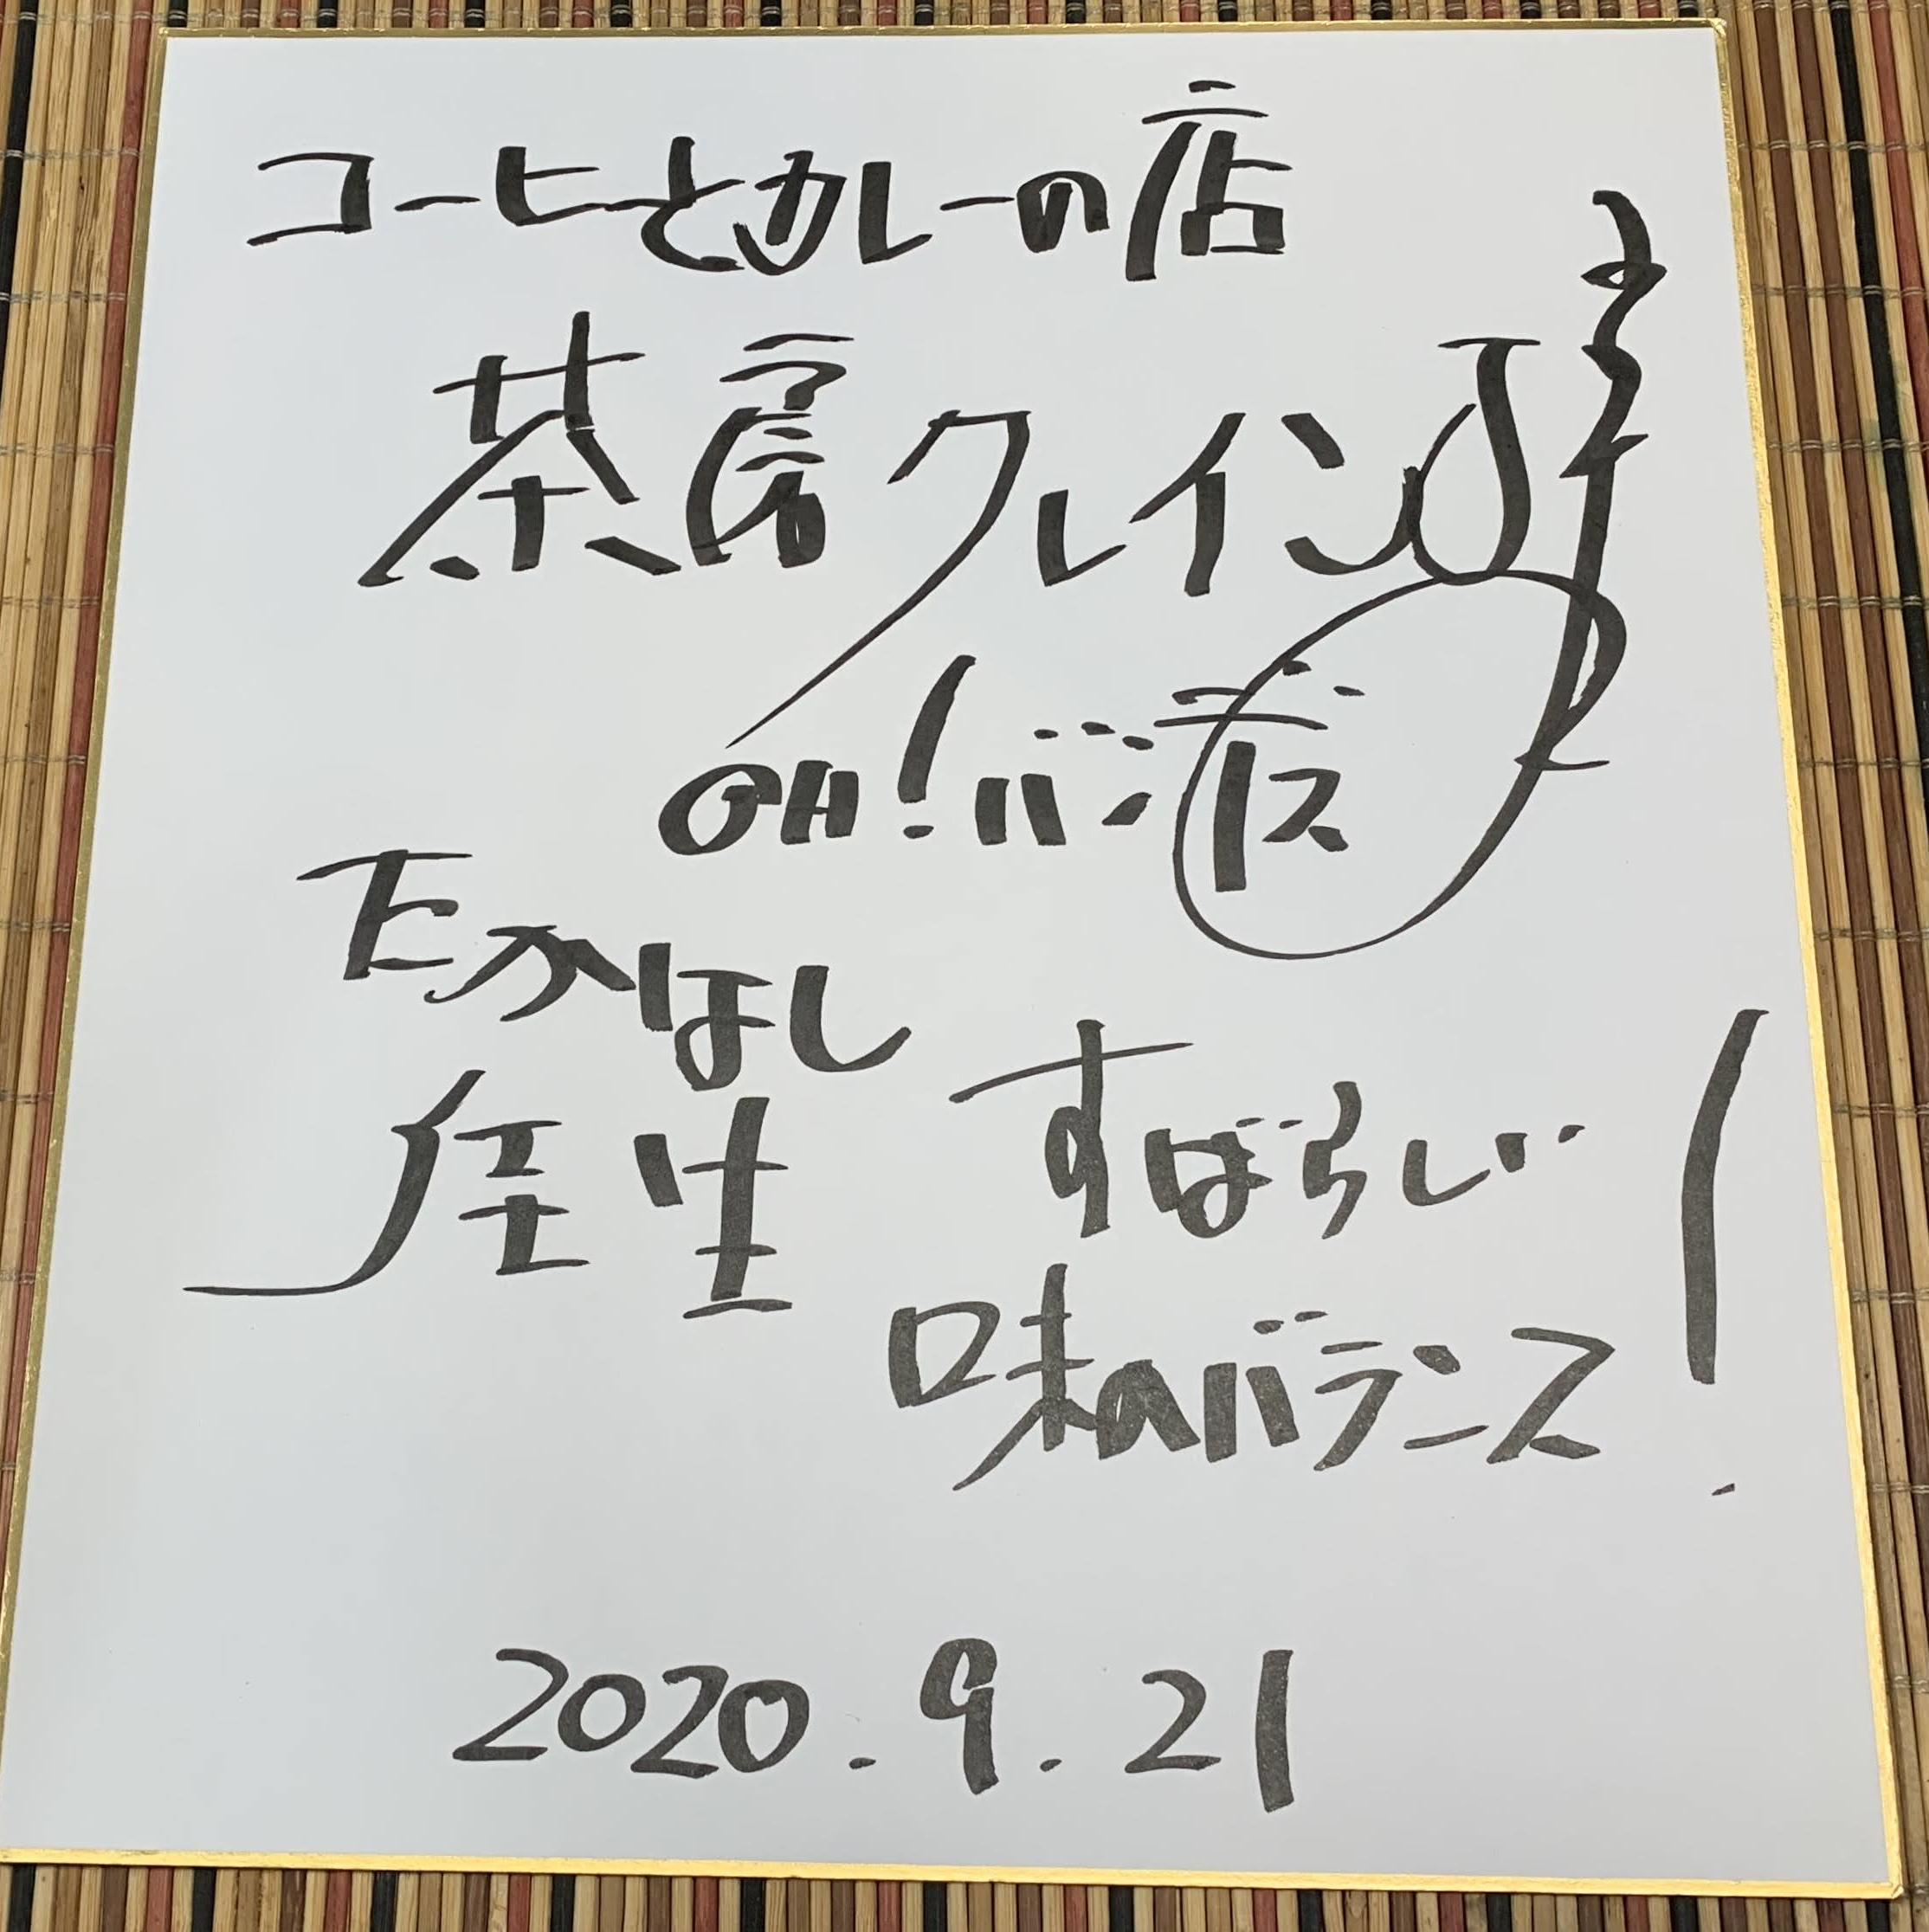 コーヒーとカレーの店
茶房クレイン
OH!バン
たかなし
すばらしい
味のバランス!
2020.9.21